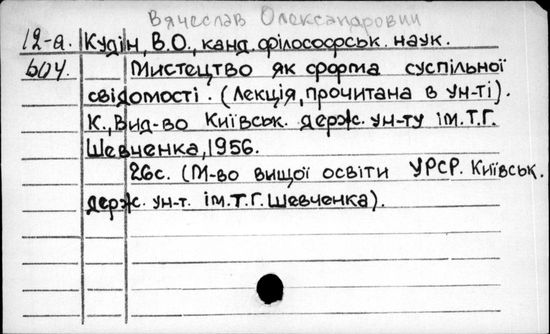 Вячеслав Олександрович
12-а. Кудін, В.О., канд. філософськ. наук.
604. Мистецтво як форма суспільної
свідомості. (Лекція, прочитана в ун-ті).
К., Вид-во Київськ. держ. ун-ту ім. Т.Г.
Шевченка, 1956.
26с. (М-во вищої освіти УРСР. Київськ.
держ. ун-т. ім. Т.Г. Шевченка).